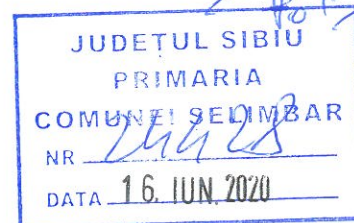 JUDEȚUL SIBIU
PRIMARIA
COMUNEI SELIMBAR
NR 24428
DATA 16. IUN. 2020